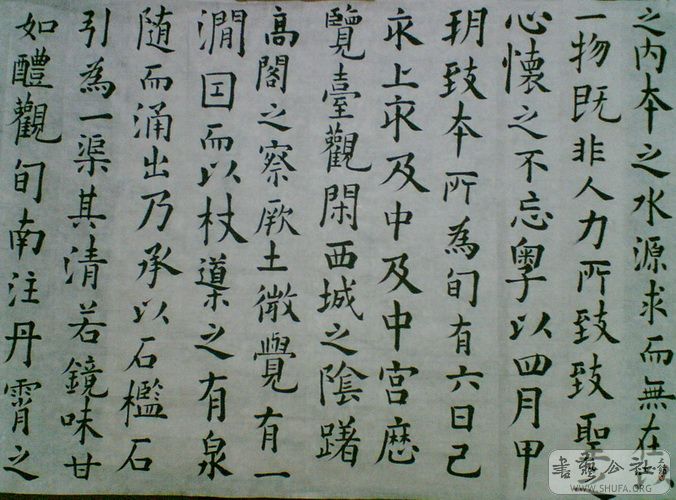 之内夲之水源求而無在
一物既非人力所致致聖
心懷之不忘粤以四月甲
玥致夲所為旬有六日己
亥上亥及中及中宫歷
覽臺觀閑西城之陰躇
高閣之察厥土微覺有一
澗因而以杖導之有泉
随而涌出乃承以石檻石
引為一渠其清若鏡味甘
如醴觀旬南注丹霄之
書藝公社
WWW.SHUFA.ORG